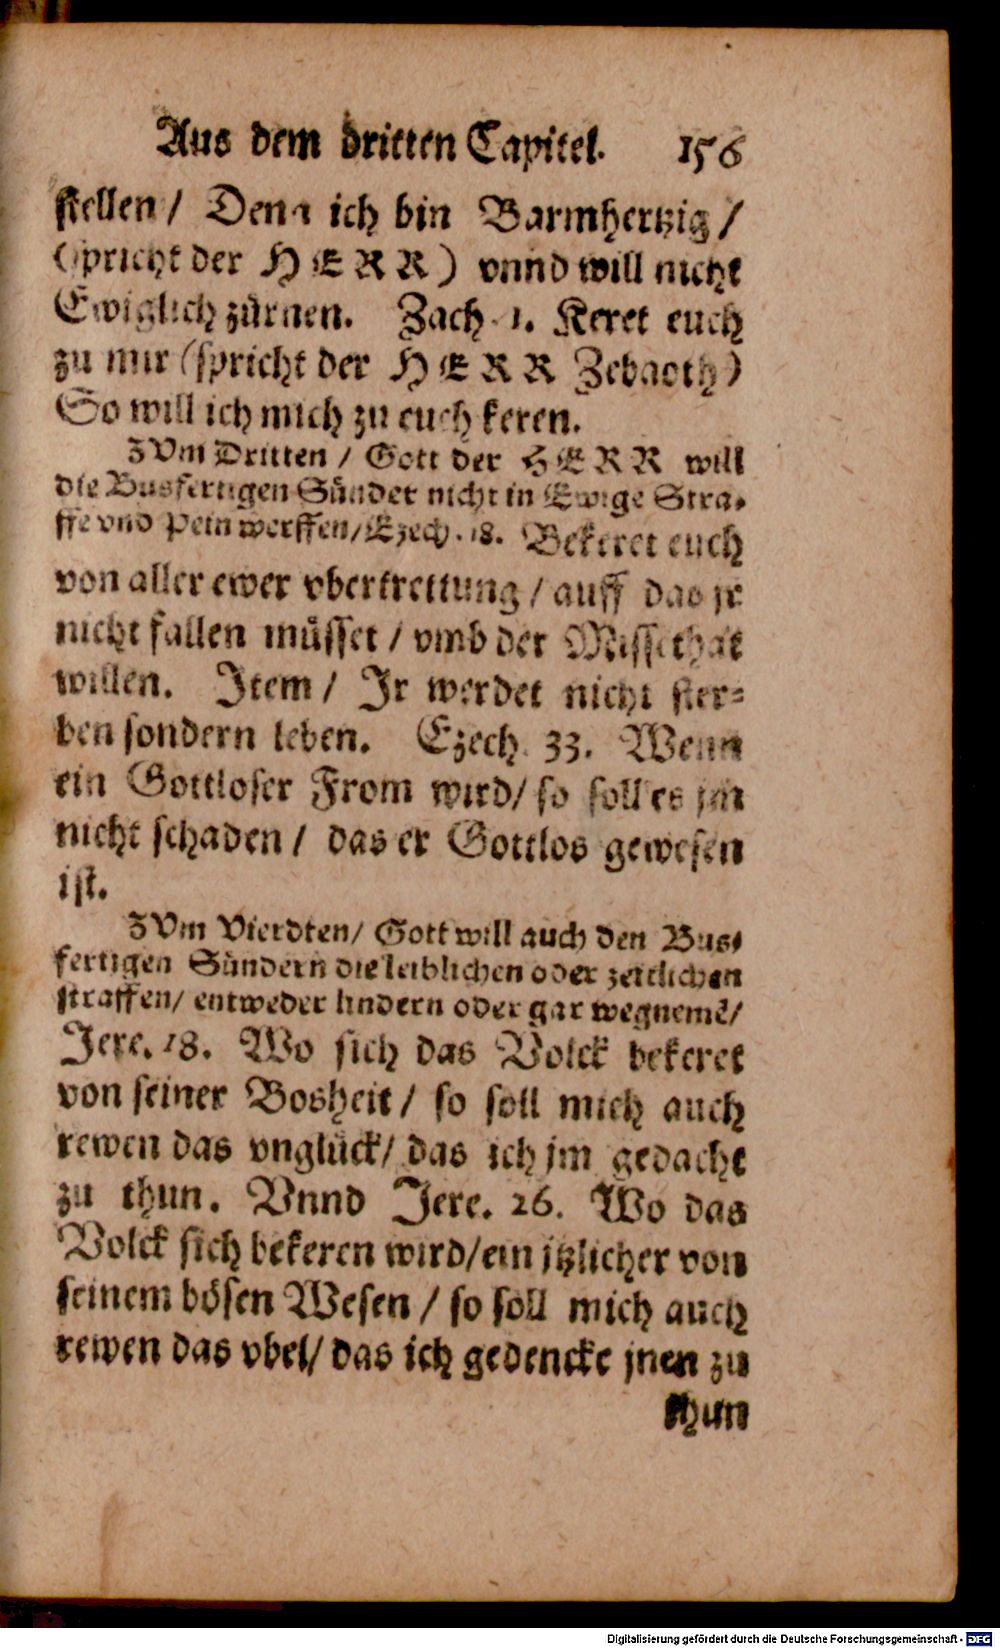 Aus dem dritten Capitel. 156
stellen / Denn ich bin Barmhertzig /
(spricht der HERR) vnnd will nicht
Ewiglich zürnen. Zach. 1. Keret euch
zu mir (spricht der HERR Zebaoth)
So will ich mich zu euch keren.
ZVm Dritten / Gott der HERR will
die Busfertigen Sünder nicht in Ewige Stra-
ffe vnd Pein werffen / Ezech. 18. Bekeret euch
von aller ewer vbertrettung / auff das jr
nicht fallen müsset / vmb der Missethat
willen. Item / Jr werdet nicht ster-
ben sondern leben. Ezech. 33. Wenn
ein Gottloser From wird / so soll es jm
nicht schaden / das er Gottlos gewesen
ist.
ZVm Vierdten / Gott will auch den Bus-
fertigen Sündern die leiblichen oder zeitlichen
straffen / entweder lindern oder gar wegnemẽ /
Jere. 18. Wo sich das Volck bekeret
von seiner Bosheit / so soll mich auch
rewen das vnglück / das ich jm gedacht
zu thun. Vnnd Jere. 26. Wo das
Volck sich bekeren wird / ein jtzlicher von
seinem bösen Wesen / so soll mich auch
rewen das vbel / das ich gedencke jnen zu
thun
Digitalisierung gefördert durch die Deutsche Forschungsgemeinschaft - DFG